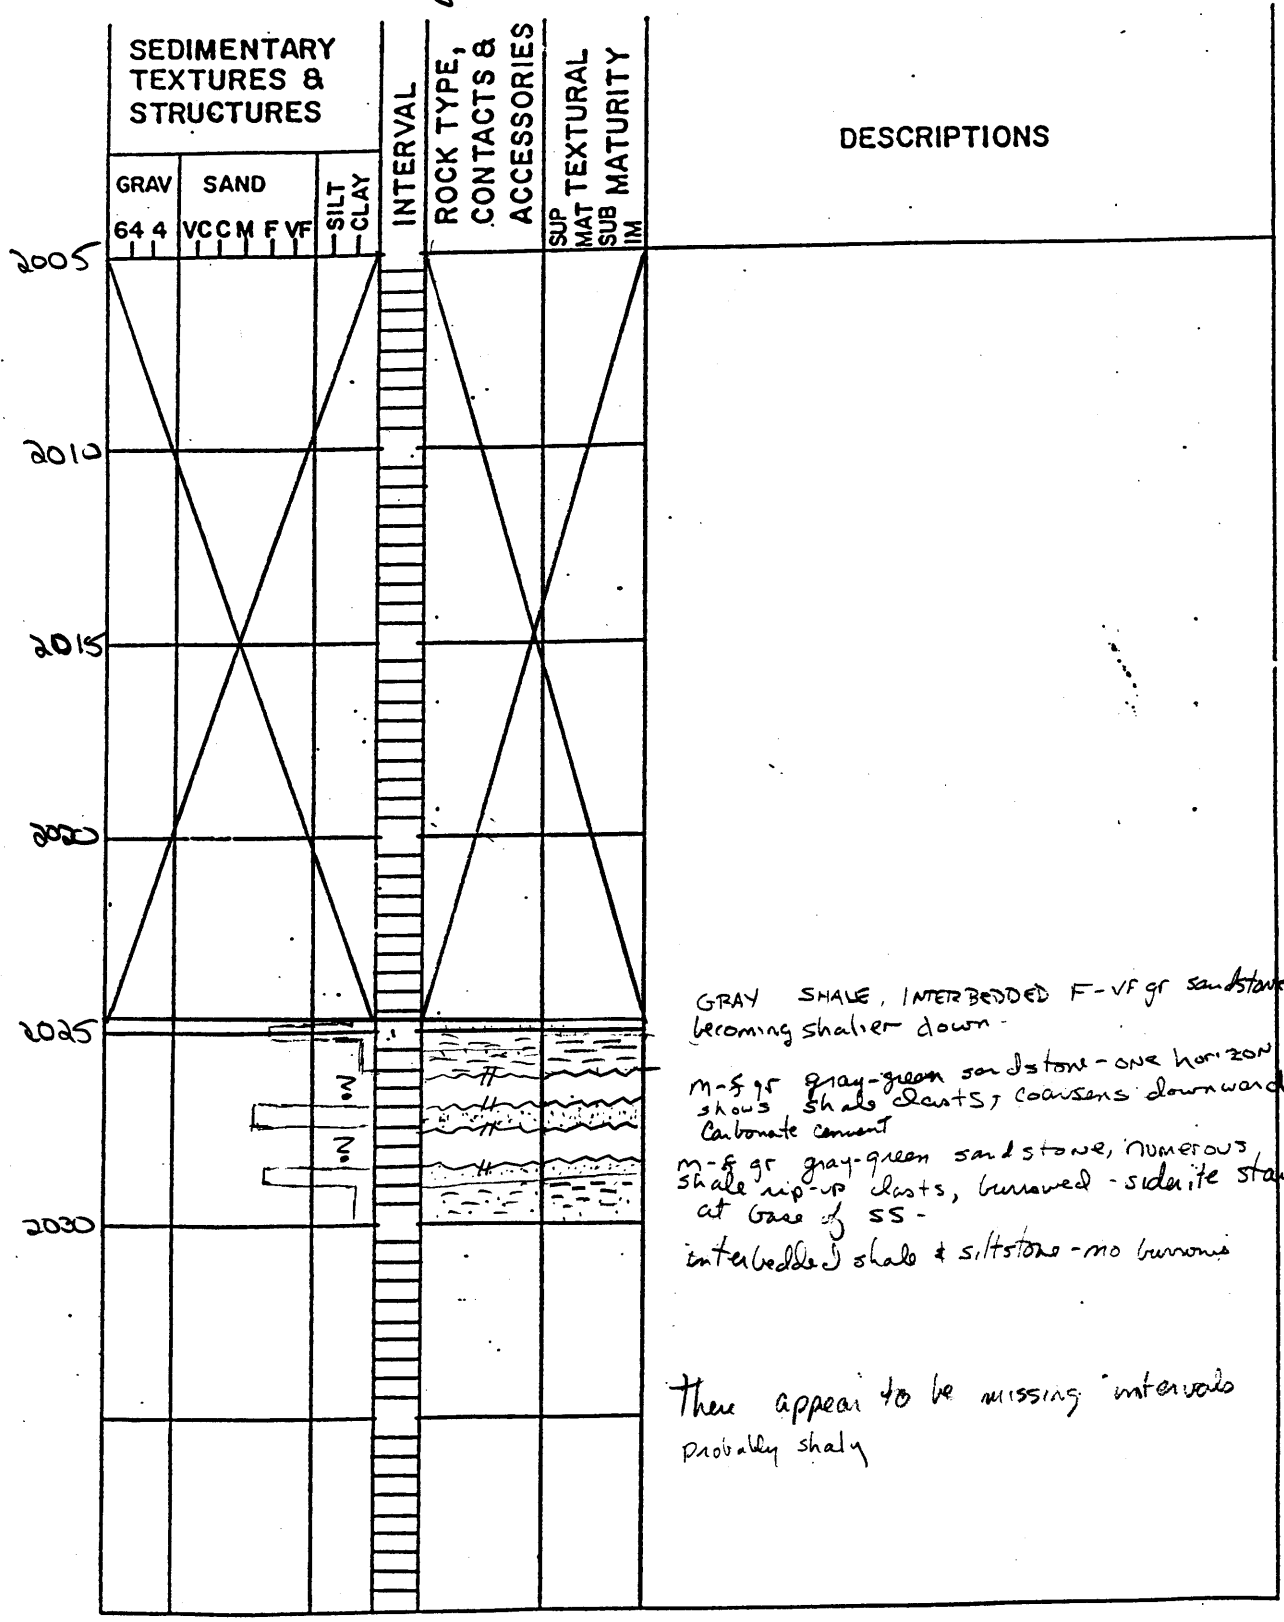 SEDIMENTARY
TEXTURES &
STRUCTURES
GRAV SAND SILT CLAY
64 4 VC C M F VF
INTERVAL
ROCK TYPE,
CONTACTS &
ACCESSORIES
TEXTURAL
MATURITY
SUP
MAT
SUB
IM
DESCRIPTIONS
2005
2010
2015
2020
2025
2030
GRAY SHALE, INTERBEDDED F-VF gr sandstone
becoming shalier down -
m-f gr gray-green sandstone - one horizon
shows shale clasts, coarsens downward
Carbonate cement
m-f gr gray-green sandstone, numerous
shale rip-up clasts, burrowed - siderite sta
at base of SS -
interbedded shale & siltstone - no burrows
There appear to be missing intervals
probably shaly